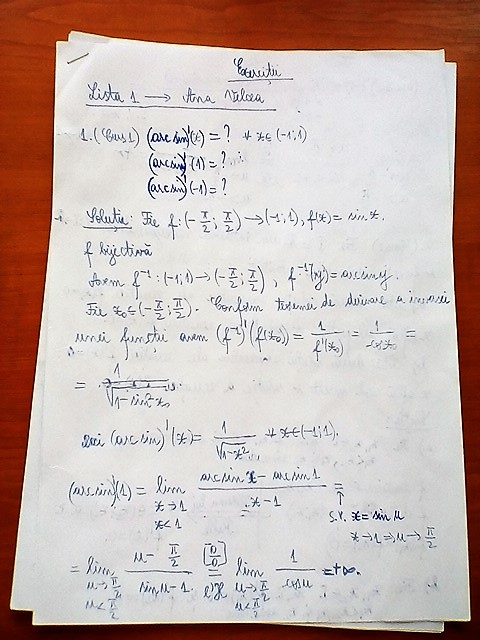 Exerciții
Lista 1 → Ana Vâlcea
1. (Curs 1) (arcsin)'(x) = ? ∀ x ∈ (-1; 1)
(arcsin)'(1) = ?
(arcsin)'(-1) = ?
Soluția: Fie f: (-π/2; π/2) → (-1; 1), f(x) = sin x.
f bijectivă
Avem f⁻¹: (-1; 1) → (-π/2; π/2), f⁻¹(y) = arcsin y.
Fie x₀ ∈ (-π/2; π/2). Conform teoremei de derivare a inversei
unei funcții avem (f⁻¹)'(f(x₀)) = 1/f'(x₀) = 1/cos x₀ =
= 1/√(1 - sin² x₀)
(arcsin)'(x) = 1/√(1-x²) ∀ x ∈ (-1; 1).
(arcsin)'(1) = lim x→1 x<1 (arcsin x - arcsin 1)/(x - 1) =
S.V. x = sin u
x → 1 ⇒ u → π/2
= lim u→π/2 u<π/2 (u - π/2)/(sin u - 1) [0/0] = l'H lim u→π/2 u<π/2 1/cos u = +∞.